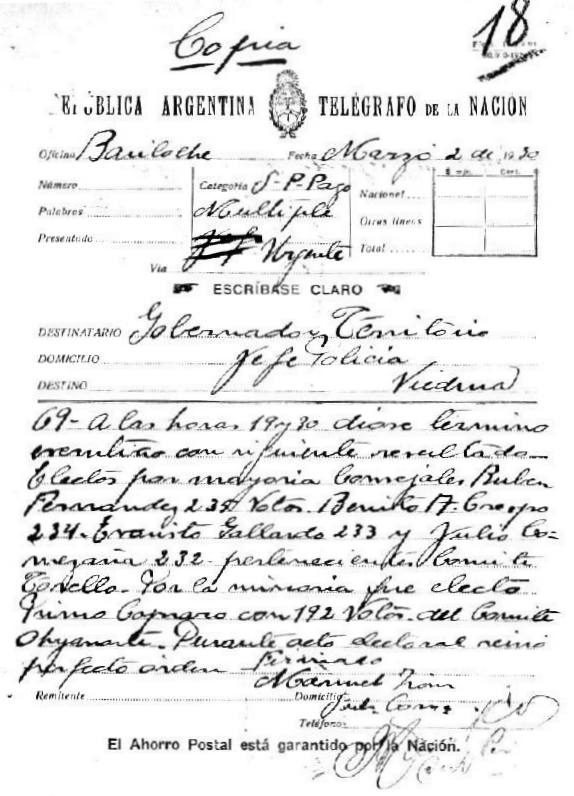 Copia
18
REPÚBLICA ARGENTINA TELÉGRAFO DE LA NACIÓN
Oficina Bariloche Fecha Marzo 2 de 1930
Número Categoría S-P-Pago Nacional $ m/n. Cent.
Palabras Multiple Otras líneas
Presentado Urgente Total
Vía
ESCRÍBASE CLARO
DESTINATARIO Gobernador Territorio
DOMICILIO Jefe Policia
DESTINO Viedma
69- A las horas 19 y 30 diose término
escrutinio con siguiente resultado-
Electos por mayoria Consejales Ruben
Fernandez 235 Votos. Benito A. Crespo
234. Evaristo Gallardo 233 y Julio Co-
mezaña 232 pertenecientes Comite
Torello. Por la minoria fue electo
Primo Capraro con 192 Votos. del Comite
Ohyanarte. Durante acto electoral reinó
perfecto orden Firmado
Manuel
Remitente Domicilio
Teléfono
El Ahorro Postal está garantido por la Nación.